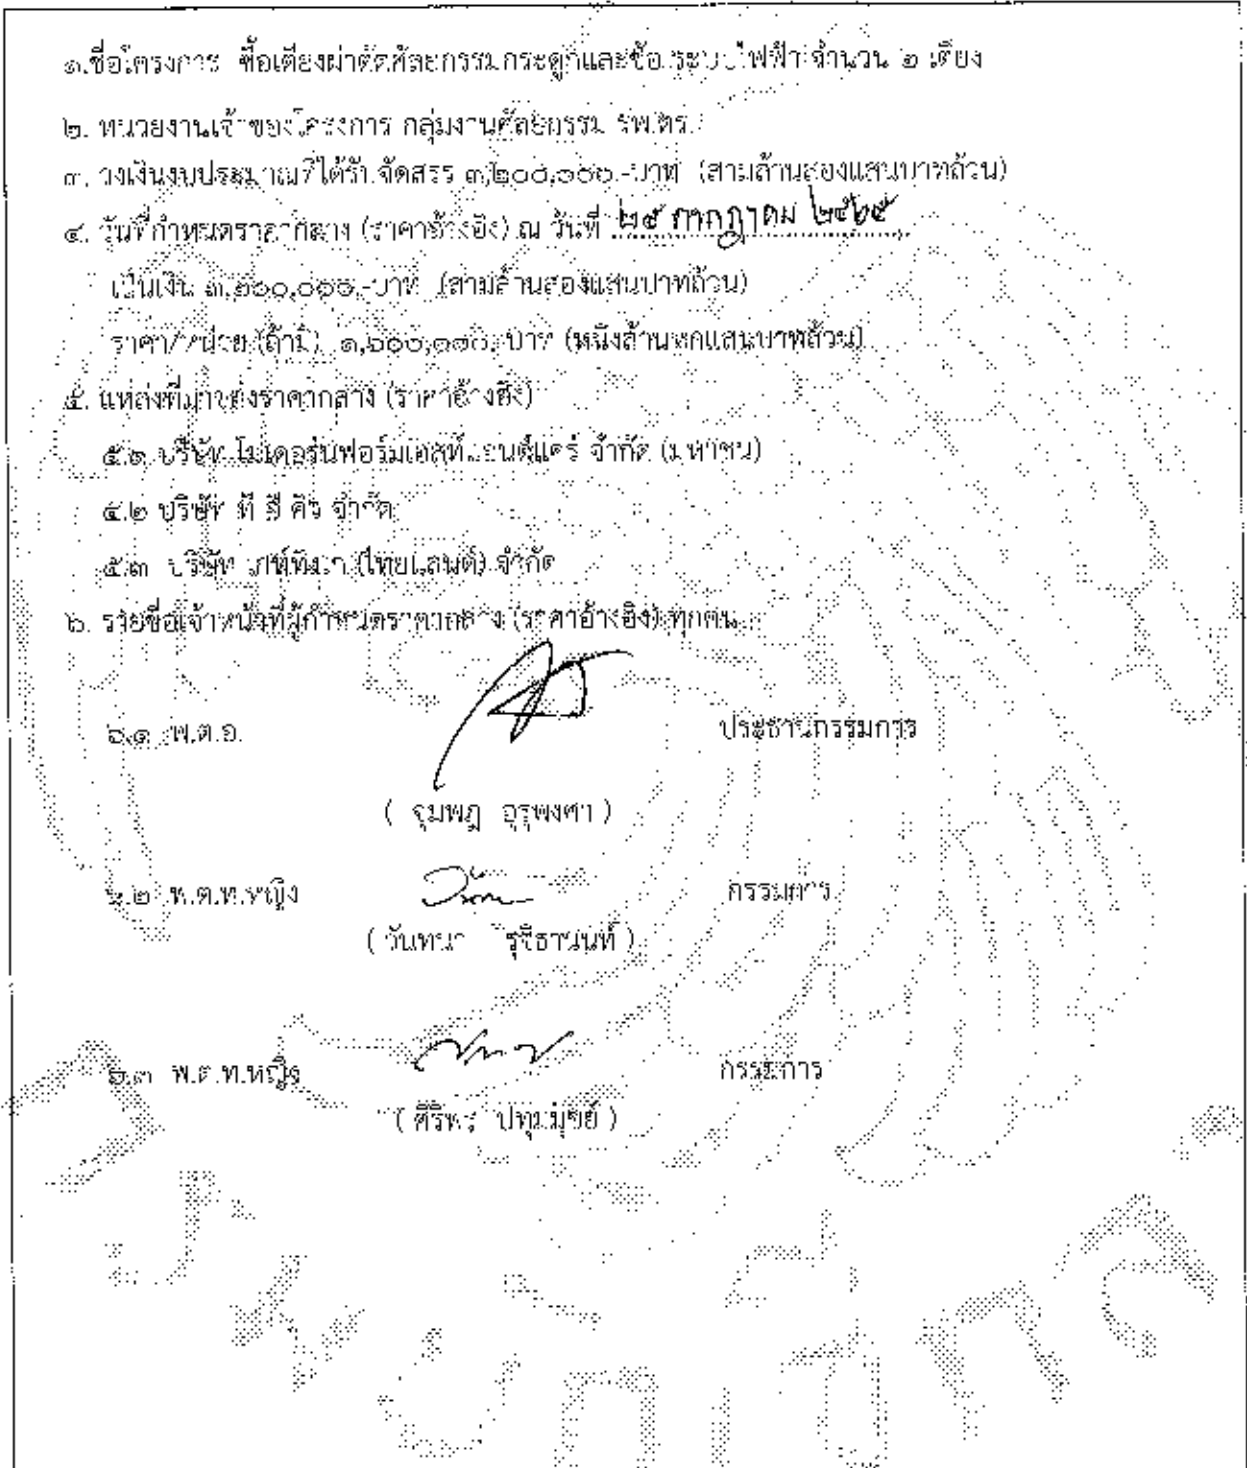 ๑.ชื่อโครงการ ซื้อเตียงผ่าตัดศัลยกรรมกระดูกและข้อ ระบบไฟฟ้า จำนวน ๒ เตียง
๒. หน่วยงานเจ้าของโครงการ กลุ่มงานศัลยกรรม รพ.ตร.
๓. วงเงินงบประมาณที่ได้รับจัดสรร ๓,๒๐๐,๐๐๐.-บาท (สามล้านสองแสนบาทถ้วน)
๔. วันที่กำหนดราคากลาง (ราคาอ้างอิง) ณ วันที่ ๒๕ กรกฎาคม ๒๕๖๕
เป็นเงิน ๓,๒๐๐,๐๐๐.-บาท (สามล้านสองแสนบาทถ้วน)
ราคา/หน่วย (ถ้ามี) ๑,๖๐๐,๐๐๐.-บาท (หนึ่งล้านหกแสนบาทถ้วน)
๕. แหล่งที่มาของราคากลาง (ราคาอ้างอิง)
๕.๑ บริษัท โมเดอร์นฟอร์มเฮลท์แอนด์แคร์ จำกัด (มหาชน)
๕.๒ บริษัท จำกัด
๕.๓ บริษัท (ไทยแลนด์) จำกัด
๖. รายชื่อเจ้าหน้าที่ผู้กำหนดราคากลาง (ราคาอ้างอิง) ทุกคน
๖.๑ พ.ต.อ. ประธานกรรมการ
( จุมพฎ อุรุพงศา )
๖.๒ พ.ต.ท.หญิง กรรมการ
( วันทนา รุจิธานนท์ )
๖.๓ พ.ต.ท.หญิง กรรมการ
( ศิริพร ปทุมมุขย์ )